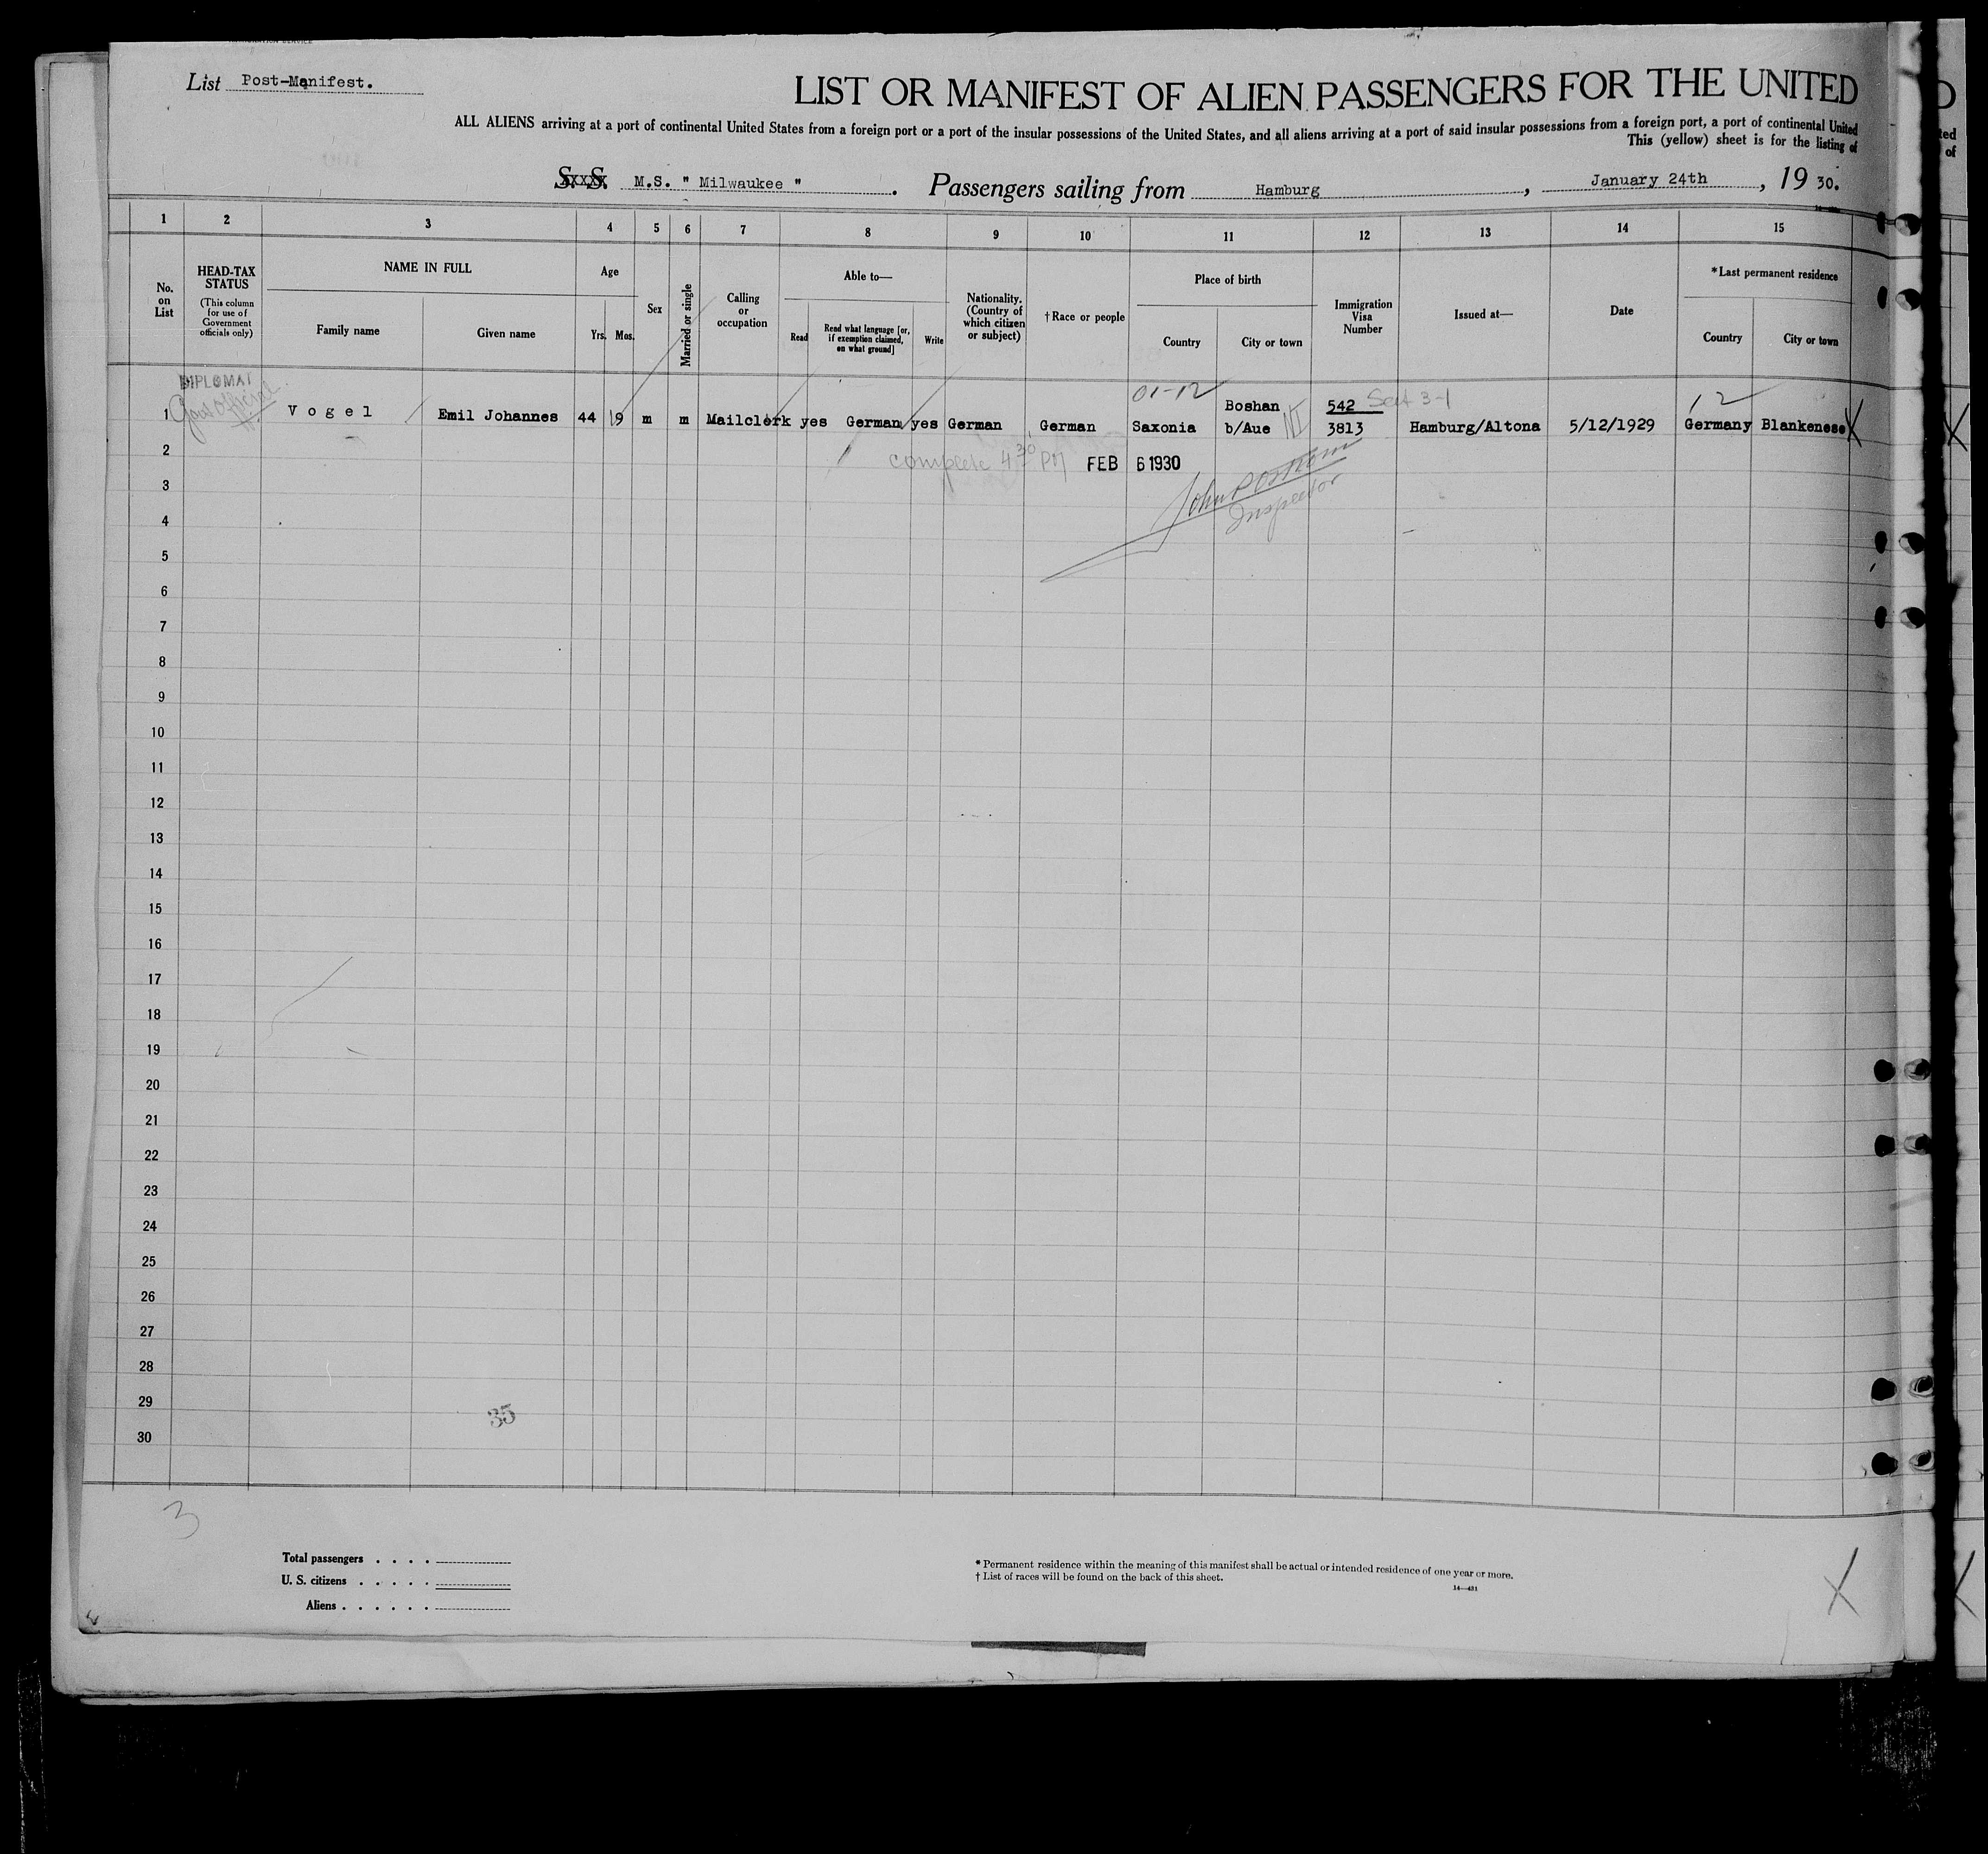 List Post-Manifest.
LIST OR MANIFEST OF ALIEN PASSENGERS FOR THE UNITED
ALL ALIENS arriving at a port of continental United States from a foreign port or a port of the insular possessions of the United States, and all aliens arriving at a port of said insular possessions from a foreign port, a port of continental United
This (yellow) sheet is for the listing of
S. S. M.S. " Milwaukee ". Passengers sailing from Hamburg, January 24th, 19 30.
1 2 3 4 5 6 7 8 9 10 11 12 13 14 15
No. on List
HEAD-TAX STATUS
(This column for use of Government officials only)
NAME IN FULL
Family name
Given name
Age
Yrs. Mos.
Sex
Married or single
Calling or occupation
Able to—
Read
Read what language [or, if exemption claimed, on what ground]
Write
Nationality. (Country of which citizen or subject)
† Race or people
Place of birth
Country
City or town
Immigration Visa Number
Issued at—
Date
*Last permanent residence
Country
City or town
DIPLOMAT
Govt Official
01-12
Sect 3-1
12
1 Vogel Emil Johannes 44 9 m m Mailclerk yes German yes German German Saxonia Boshan b/Aue 542 3813 Hamburg/Altona 5/12/1929 Germany Blankenese X
2 complete 4 30 PM FEB 6 1930
3
Inspector
4
5
6
7
8
9
10
11
12
13
14
15
16
17
18
19
20
21
22
23
24
25
26
27
28
29
35
30
3
Total passengers . . . .
U. S. citizens . . . . .
Aliens . . . . . .
* Permanent residence within the meaning of this manifest shall be actual or intended residence of one year or more.
† List of races will be found on the back of this sheet.
14—431
X